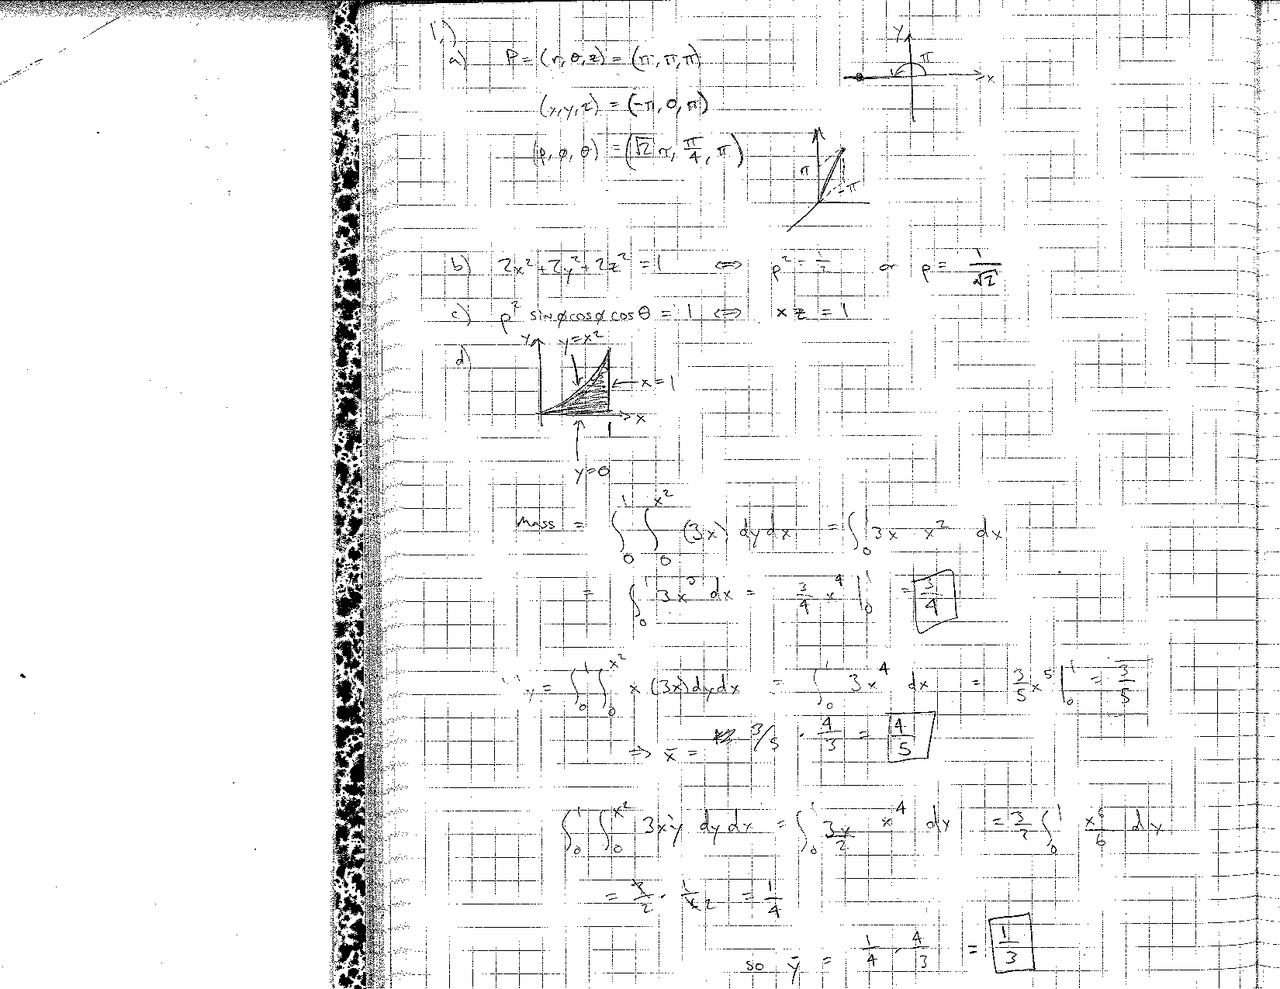 1.)
a) P = (r, θ, z) = (π, π, π)
(x, y, z) = (-π, 0, π)
(ρ, φ, θ) = (√2 π, π/4, π)
y
π
x
π
π
b) 2x² + 2y² + 2z² = 1 ⇔ ρ² = 1/2 or ρ = 1/√2
c) ρ² sinφ cosφ cosθ = 1 ⇔ x z = 1
d)
y
y = x²
← x = 1
1
x
y = 0
Mass = ∫₀¹ ∫₀^x² (3x) dy dx = ∫₀¹ 3x x² dx
= ∫₀¹ 3x³ dx = 3/4 x⁴ |₀¹ = 3/4
y = ∫₀¹ ∫₀^x² x (3x) dy dx = ∫₀¹ 3x⁴ dx = 3/5 x⁵ |₀¹ = 3/5
⇒ x̄ = 3/5 · 4/3 = 4/5
∫₀¹ ∫₀^x² 3xy dy dx = ∫₀¹ 3x/2 x⁴ dx = 3/2 ∫₀¹ x⁶/6 dx
= 3/2 · = 1/4
so ȳ = 1/4 · 4/3 = 1/3